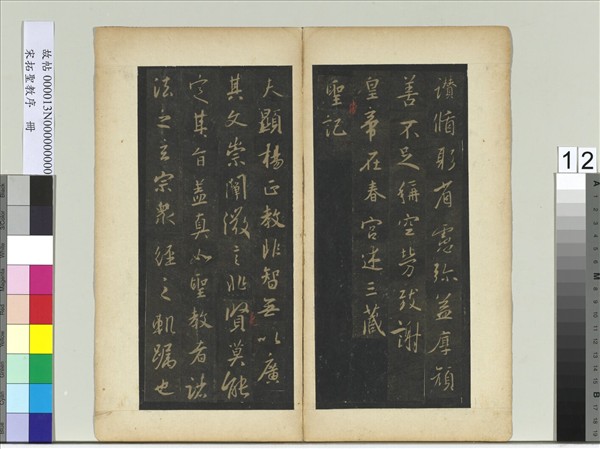 讚循躬省慮弥益厚顔
善不足稱空勞致謝
皇帝在春宮述三藏
聖記
夫顯揚正教非智無以廣
其文崇闡微言非賢莫能
定其旨蓋真如聖教者諸
法之玄宗衆經之軌躅也
故帖 000013N000000000
宋拓聖教序 冊
12